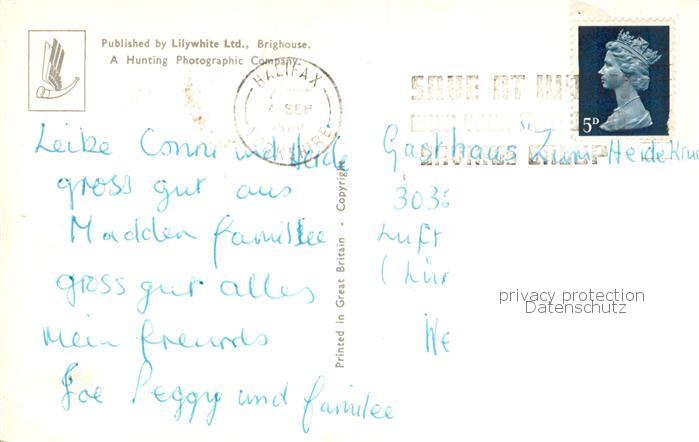 Published by Lilywhite Ltd., Brighouse.
A Hunting Photographic Company
HALIFAX
4 SEP
YORKSHIRE
SAVE AT
5D
Leibe Conni und Heide
gross gut aus
Madden familiee
gross gut alles
Mein freunds
Joe Peggy und familee
Printed in Great Britain - Copyright
Gasthaus Zum Heidekru
303
Luft
(Lür
We
privacy protection
Datenschutz